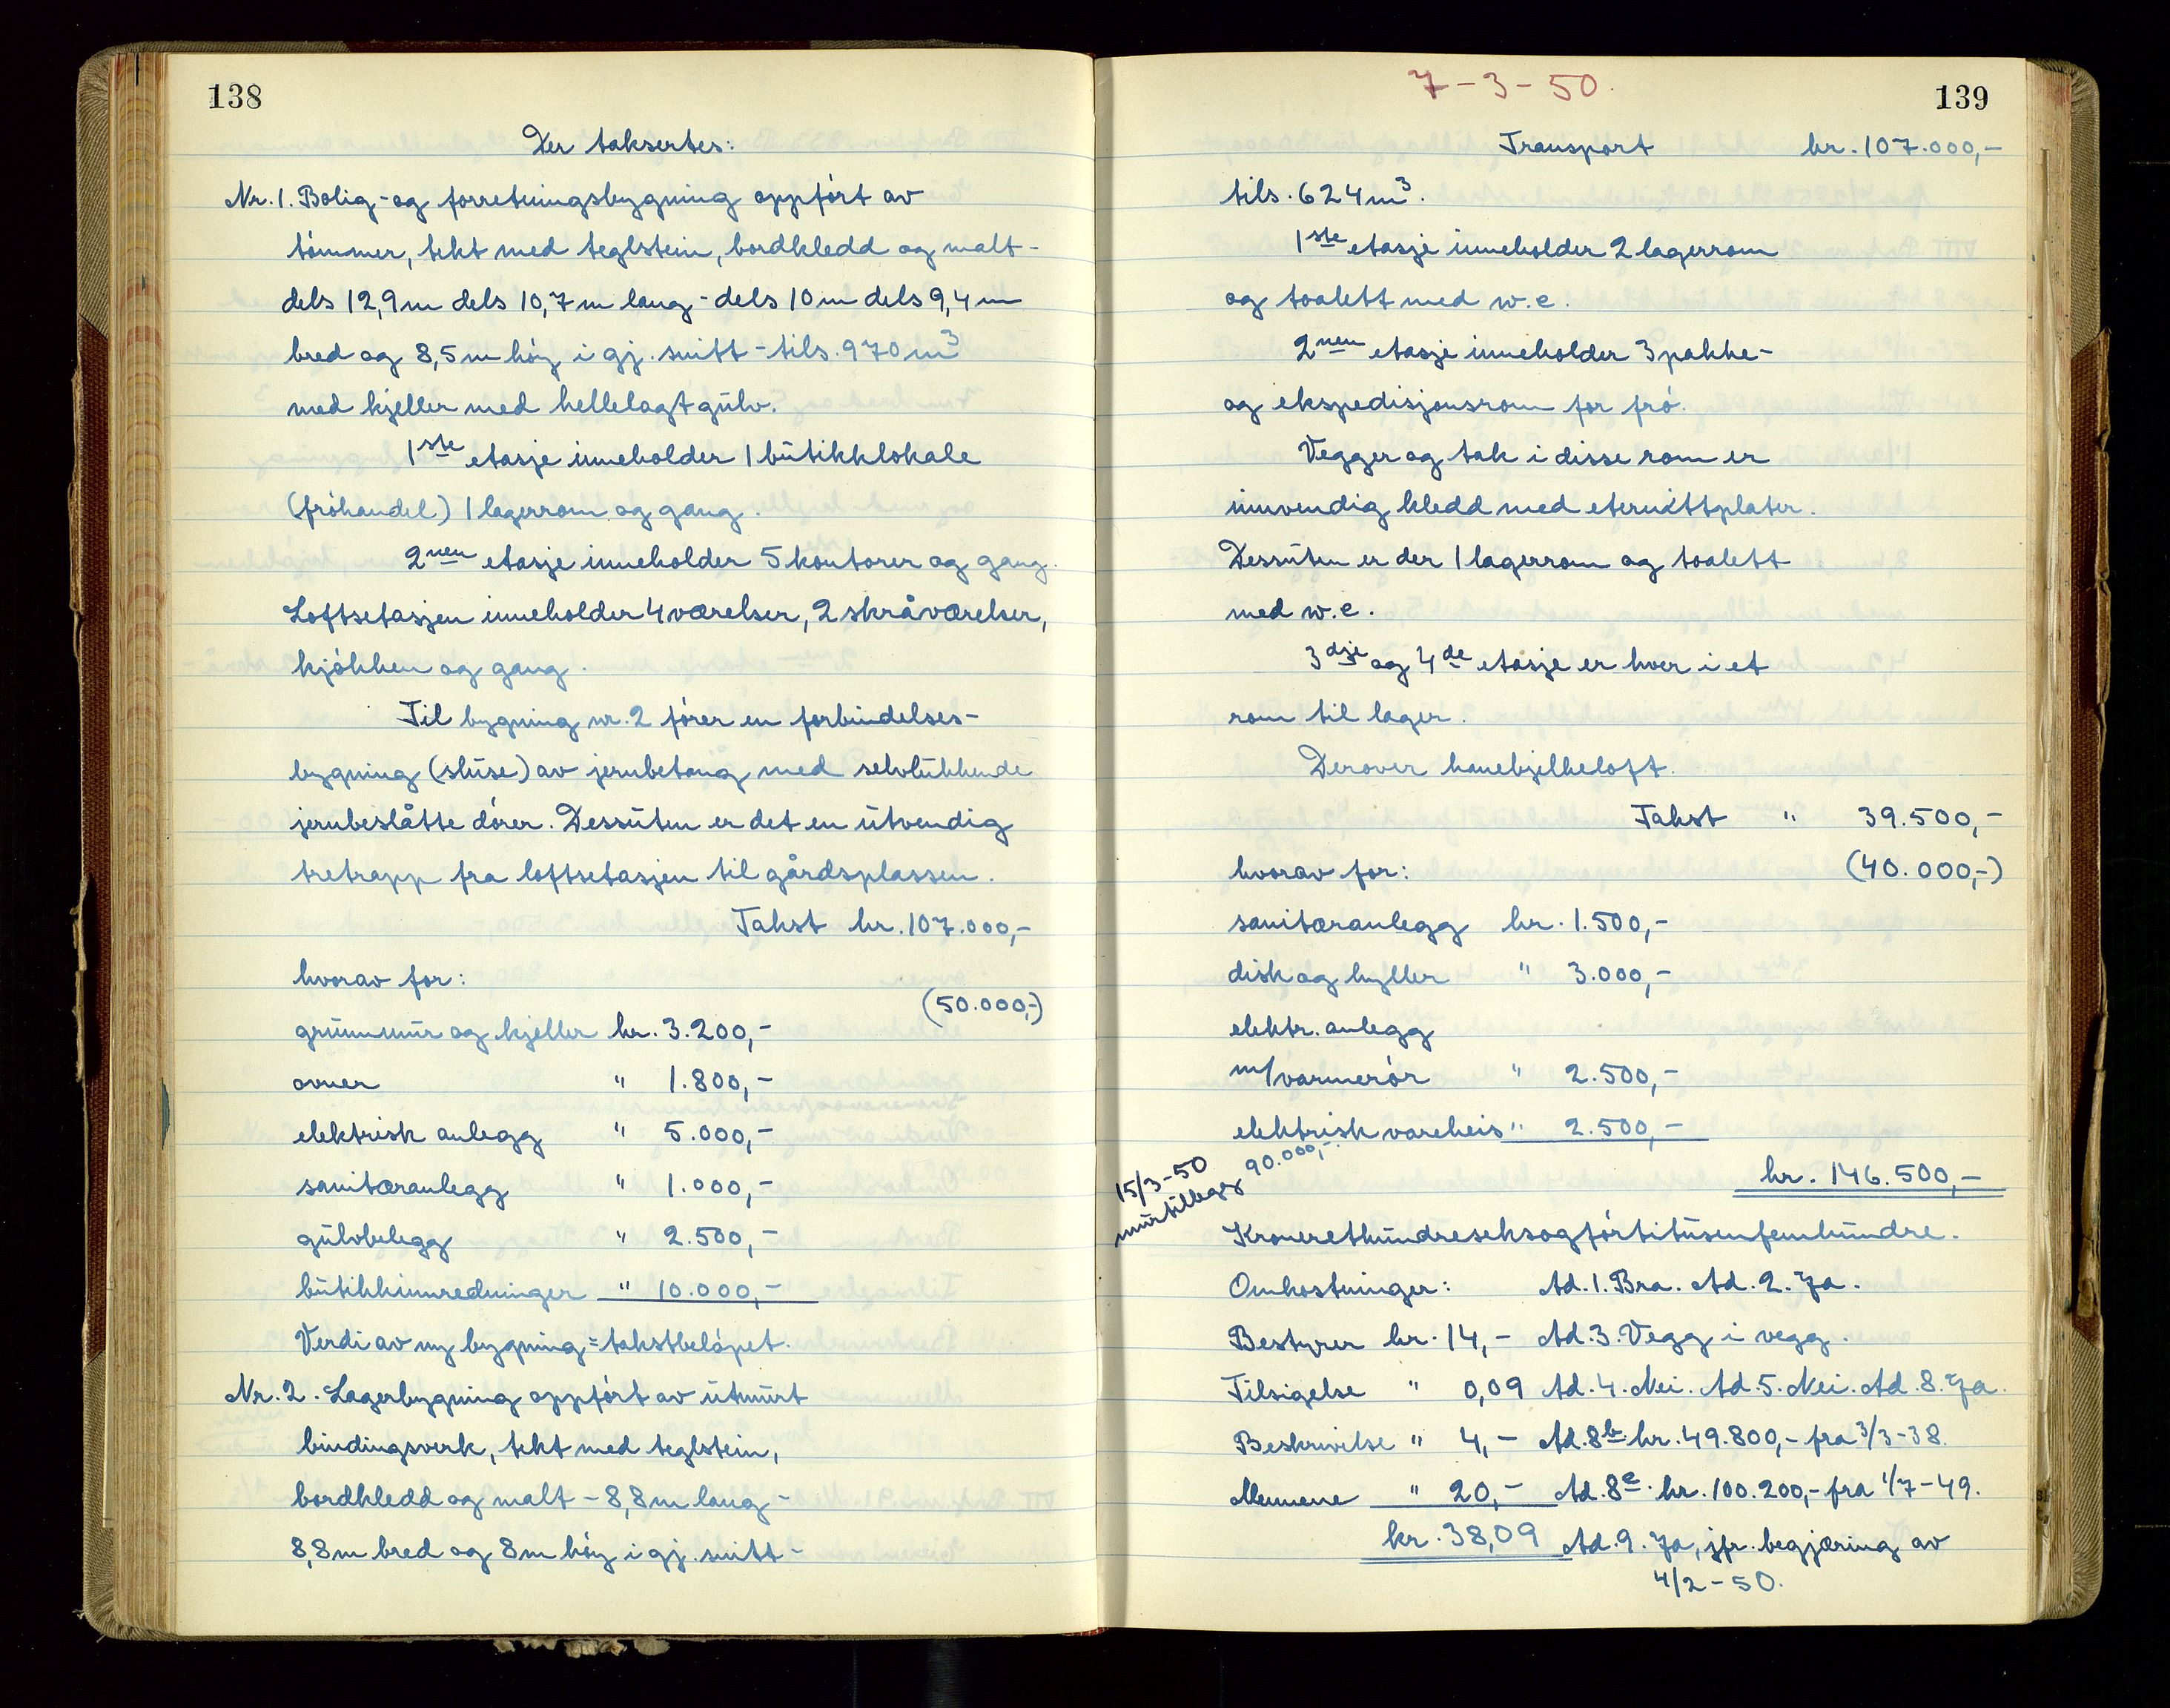 138
Der taksertes:
Nr. 1. Bolig- og forretningsbygning oppført av
tømmer, tekt med teglstein, bordkledd og malt-
dels 12,9 m dels 10,7 m lang - dels 10 m dels 9,4 m
bred og 8,5 m høy i gj. snitt - tils. 970 m³
med kjeller med hellelagt gulv.
1ste etasje inneholder 1 butikklokale
(frøhandel) 1 lagerrom og gang.
2nen etasje inneholder 5 kontorer og gang.
Loftsetasjen inneholder 4 værelser, 2 skråværelser,
kjøkken og gang.
Til bygning nr. 2 fører en forbindelses-
bygning (sluse) av jernbetong med selvlukkende
jernbeslåtte dører. Dessuten er det en utvendig
tretrapp fra loftsetasjen til gårdsplassen.
Takst kr. 107.000,-
hvorav for:
(50.000,-)
grunnmur og kjeller kr. 3.200,-
ovner " 1.800,-
elektrisk anlegg " 5.000,-
sanitæranlegg " 1.000,-
gulvbelegg " 2.500,-
butikkinnredninger " 10.000,-
Verdi av ny bygning = takstbeløpet.
Nr. 2. Lagerbygning oppført av utmurt
bindingsverk, tekt med teglstein,
bordkledd og malt - 8,8 m lang -
8,8 m bred og 8 m høy i gj. snitt -
7-3-50.
139
Transport kr. 107.000,-
tils. 624 m³.
1ste etasje inneholder 2 lagerrom
og toalett med w.c.
2nen etasje inneholder 3 pakke-
og ekspedisjonsrom for frø.
Vegger og tak i disse rom er
innvendig kledd med eternittplater.
Dessuten er der 1 lagerrom og toalett
med w.c.
3dje og 4de etasje er hver i et
rom til lager.
Derover hanebjelkeloft.
Takst " 39.500,-
hvorav for: (40.000,-)
sanitæranlegg kr. 1.500,-
disk og hyller " 3.000,-
elektr. anlegg
m/varmerør " 2.500,-
elektrisk vareheis " 2.500,-
15/3-50 90.000,-
murtillegg
kr. 146.500,-
Kronerethundreseksogførtitusenfemhundre.
Omkostninger: Ad. 1. Bra. Ad. 2. Ja.
Bestyrer kr. 14,- Ad. 3. Vegg i vegg.
Tilsigelse " 0,09 Ad. 4. Nei. Ad. 5. Nei. Ad. 8. Ja.
Beskrivelse " 4,- Ad. 8b kr. 49.800,- fra 3/3-38.
Mennene " 20,- Ad. 8c. kr. 100.200,- fra 1/7-49.
kr. 38,09 Ad. 9. Ja, jfr. begjæring av
4/2-50.